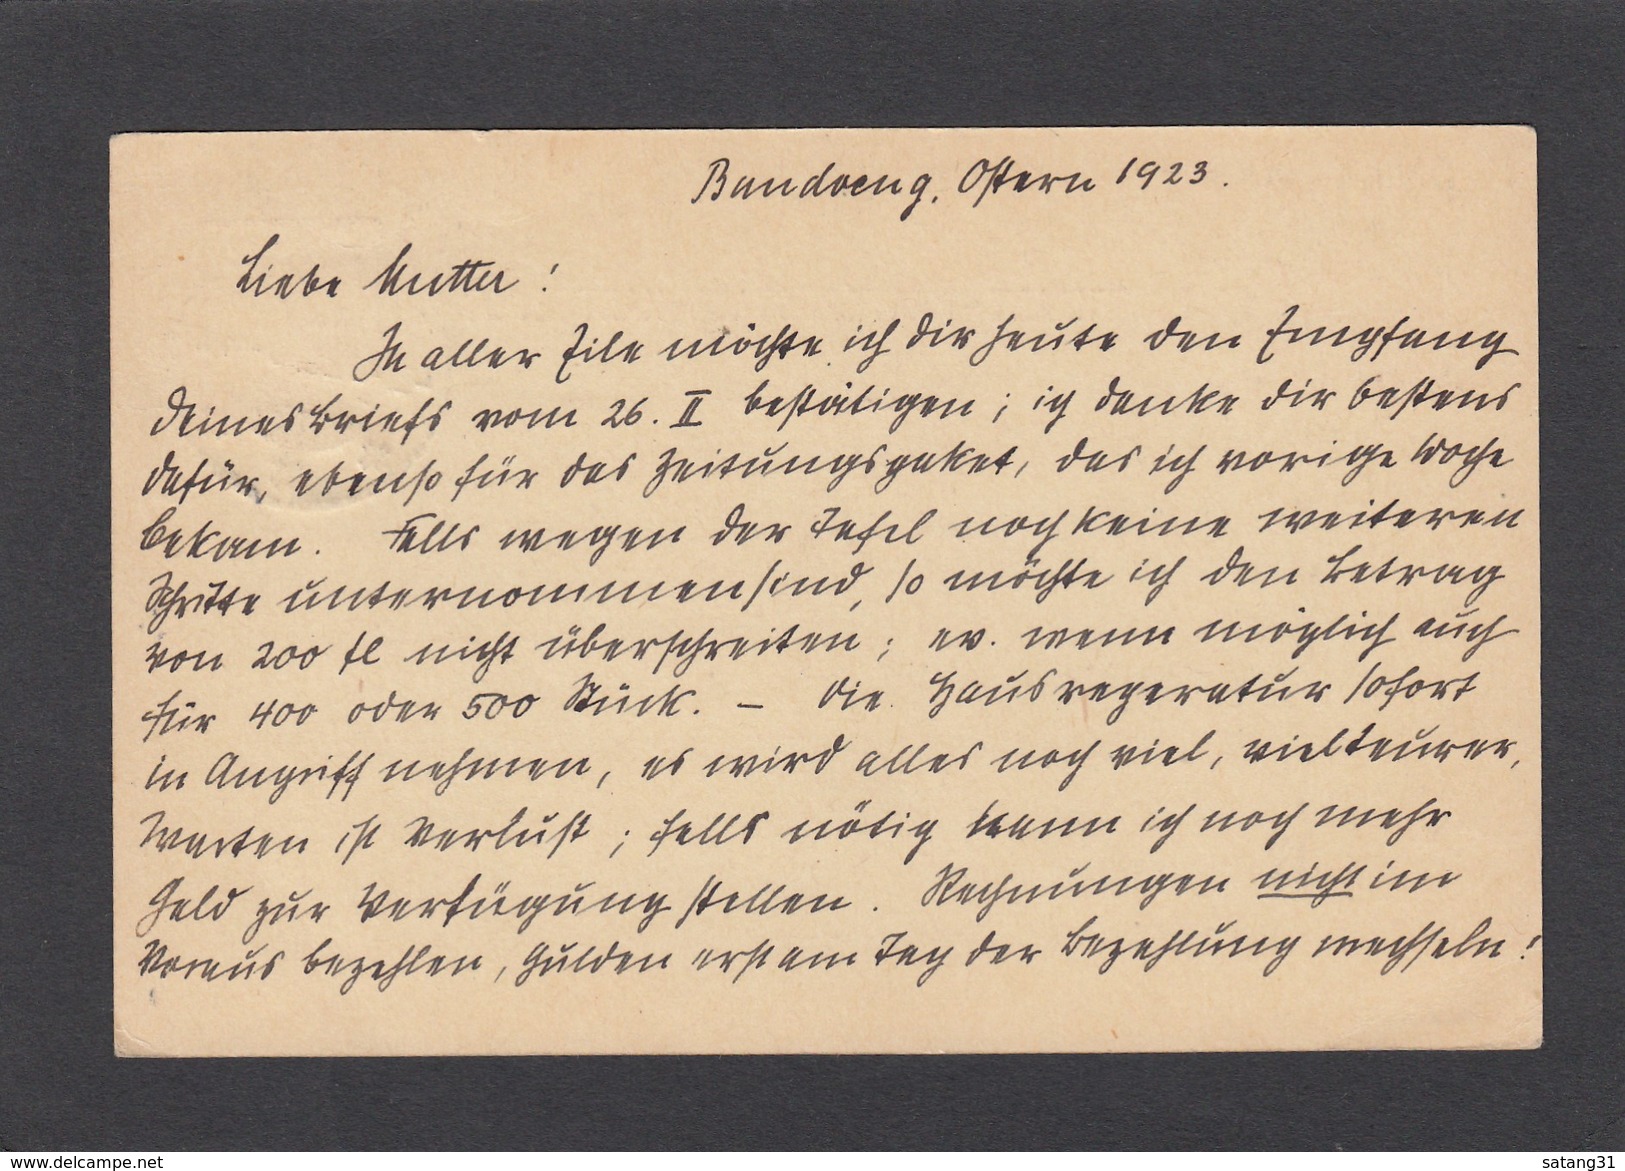 Bandoeng, Ostern 1923.
Liebe Mutter!
In aller Eile möchte ich dir heute den Empfang
deines Briefs vom 26. II bestätigen; ich danke dir bestens
dafür, ebenso für das Zeitungspaket, das ich vorige Woche
bekam. Falls wegen der Tafel noch keine weiteren
Schritte unternommen sind, so möchte ich den Betrag
von 200 fl nicht überschreiten; ev. wenn möglich auch
für 400 oder 500 Stück. – Die Hausreperatur sofort
in Angriff nehmen, es wird alles noch viel, viel teurer,
Warten ist Verlust; falls nötig kann ich noch mehr
Geld zur Verfügung stellen. Rechnungen nicht im
Voraus bezahlen, Gulden erst am Tag der Bezahlung wechseln!
www.delcampe.net
satang31